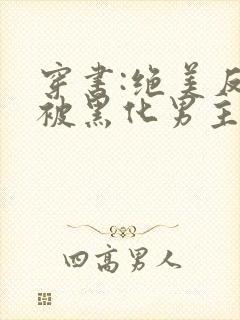 穿书:绝美反
被黑化男主
四高男人